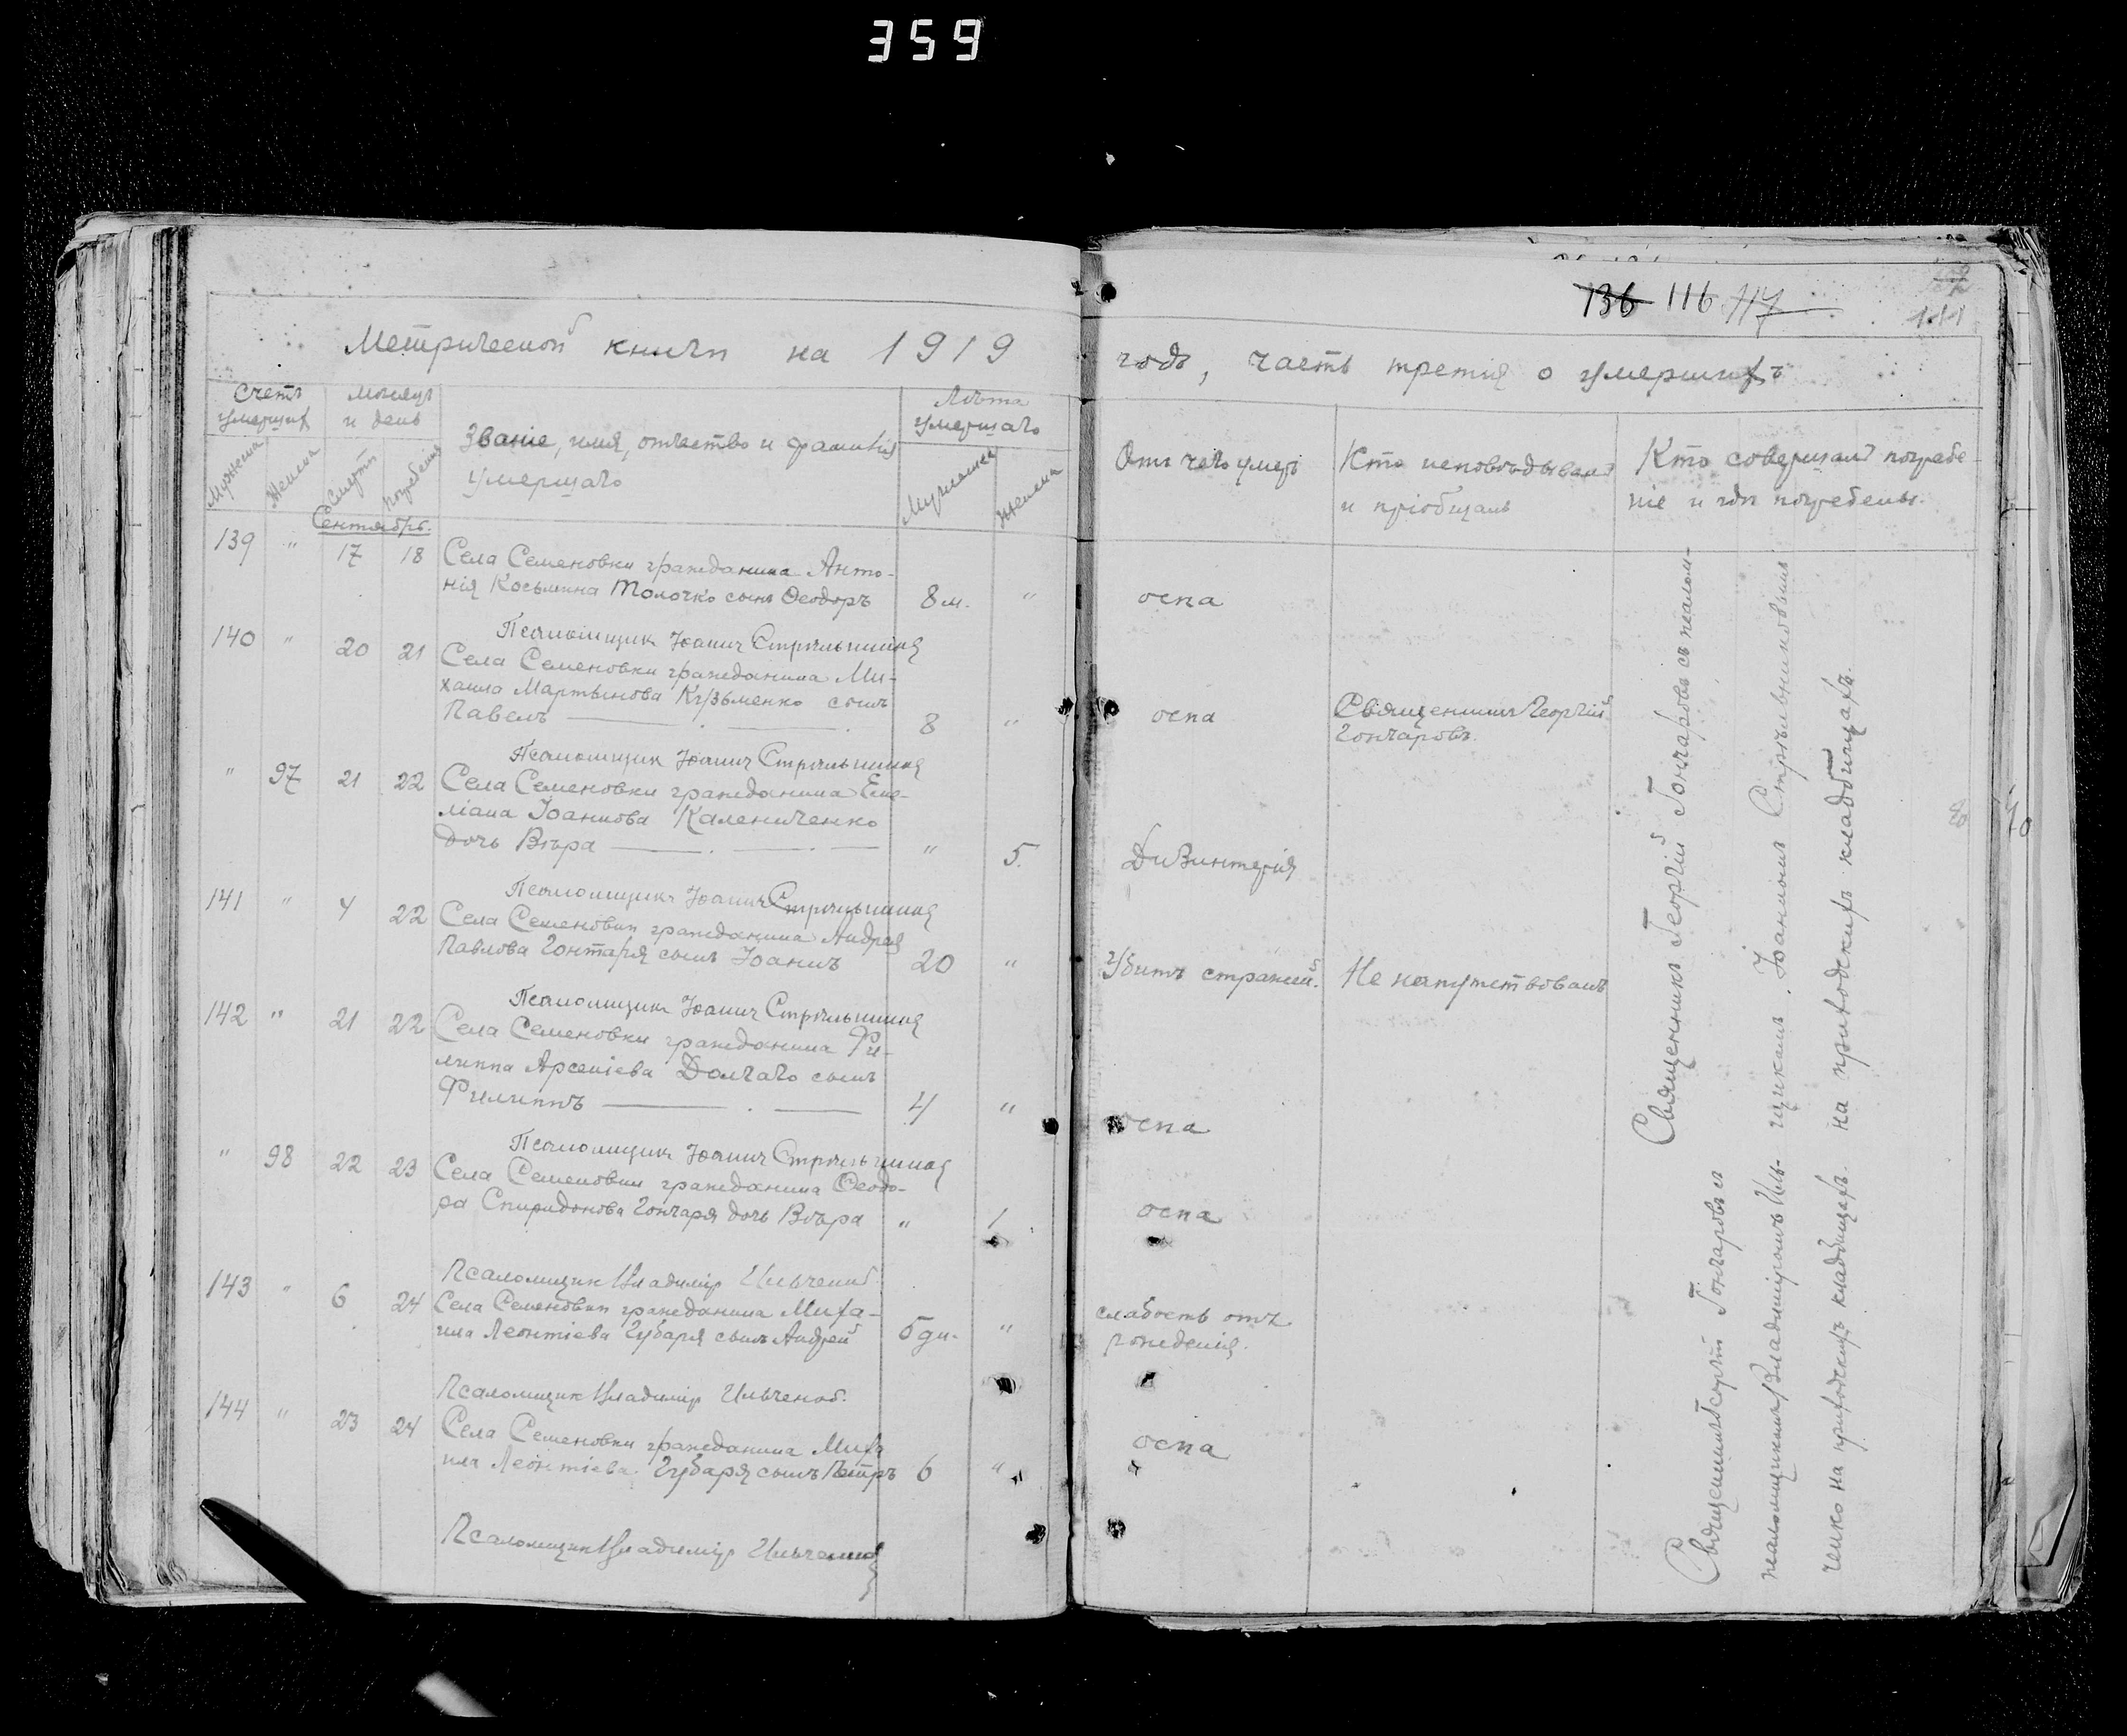 359
136 116 117
111
Метрической книги на 1919
годъ, часть третія о умершихъ
Счетъ умершихъ
Мѣсяцъ и день
Званіе, имя, отчество и фамилія умершаго
Лѣта умершаго
Мужеска
Женска
Смерти
Погребенія
Мужеска
Женска
Отъ чего умеръ
Кто исповѣдывалъ и пріобщалъ
Кто совершалъ погребеніе и гдѣ погребены.
Сентябрь.
139 " 17 18 Села Семеновки гражданина Анто-
нія Косьмина Толочко сынъ Ѳеодоръ 8 м. " оспа
Псаломщикъ Іоаннъ Стрѣльниковъ
140 " 20 21 Села Семеновки гражданина Ми-
хаила Мартынова Кузьменко сынъ
Павелъ 8 " оспа Священникъ Георгій
Гончаровъ.
Псаломщикъ Іоаннъ Стрѣльниковъ
" 97 21 22 Села Семеновки гражданина Еме-
ліана Іоаннова Калениченко
дочь Вѣра " 5. Дизинтерія
Псаломщикъ Іоаннъ Стрѣльниковъ
141 " 4 22 Села Семеновки гражданина Андрея
Павлова Гонтаря сынъ Іоаннъ 20 " Убитъ стражей. Не напутствованъ
Псаломщикъ Іоаннъ Стрѣльниковъ
142 " 21 22 Села Семеновки гражданина Фи-
липпа Арсеніева Долгаго сынъ
Филиппъ 4 " оспа
Псаломщикъ Іоаннъ Стрѣльниковъ
" 98 22 23 Села Семеновки гражданина Ѳеодо-
ра Спиридонова Гончаря дочь Вѣра " 1 оспа
Псаломщикъ Владимір Ильченко
143 " 6 24 Села Семеновки гражданина Миха-
ила Леонтіева Губаря сынъ Андрей 5 дн. " слабость отъ
рожденія.
Псаломщикъ Владимір Ильченко.
144 " 23 24 Села Семеновки гражданина Миха
ила Леонтіева Губаря сынъ Петръ 6 " оспа
Псаломщикъ Владимір Ильченко
Священникъ Георгій Гончаровъ съ псалом-
щикомъ Іоанномъ Стрѣльниковымъ
на приходскихъ кладбищахъ.
Священникъ Георгій Гончаровъ съ
псаломщикомъ Владиміромъ Иль-
ченко на приходскихъ кладбищахъ.